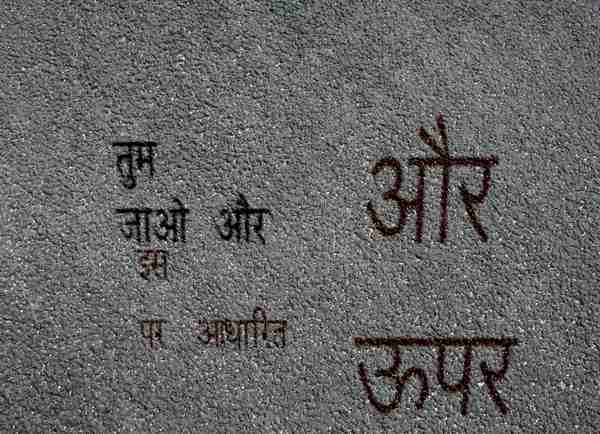 तुम
जाओ और
इस
पर आधारित
और
ऊपर